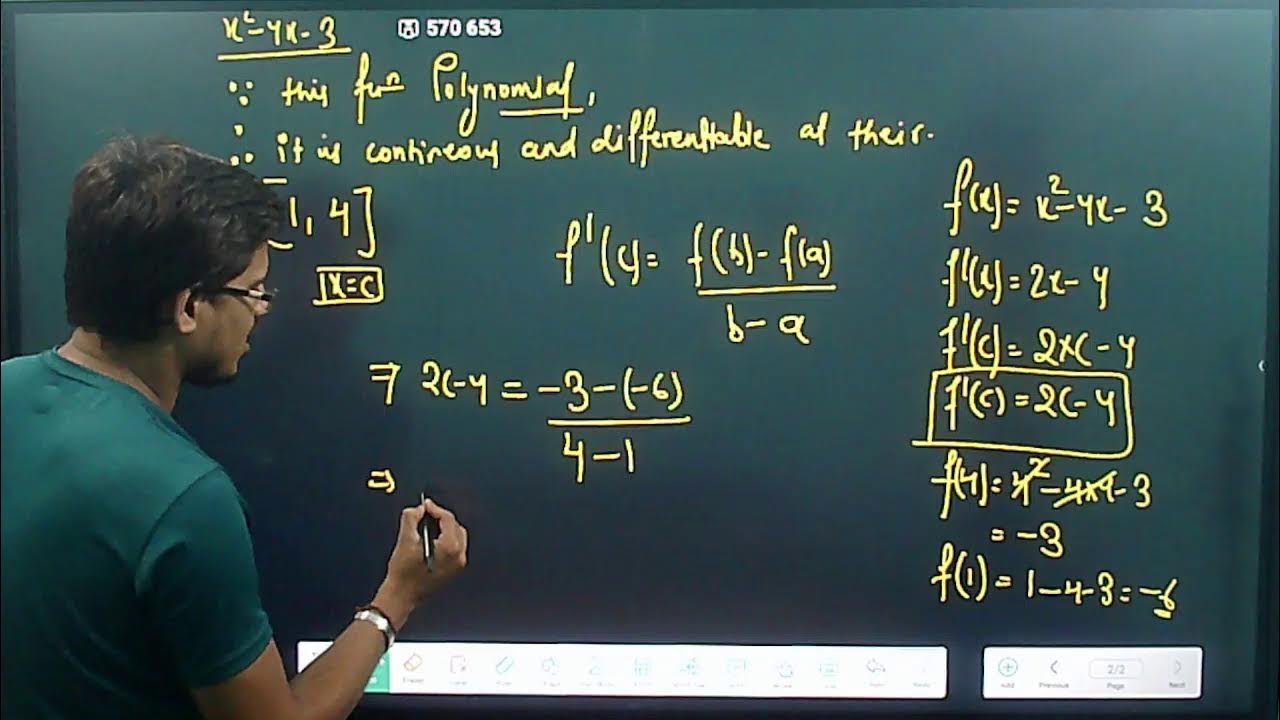 x²-4x-3
570 653
∵ this fun Polynomial,
∴ it is contineous and differentiable at their.
1, 4]
x=c
f'(c) = f(b)-f(a) / b-a
⇒ 2c-4 = -3-(-6) / 4-1
⇒
f(x) = x²-4x-3
f'(x) = 2x-4
f'(c) = 2×c-4
f'(c) = 2c-4
f(4) = 4²-4×4-3
= -3
f(1) = 1-4-3 = -6
Eraser
Add
Previous
2/2
Page
Next